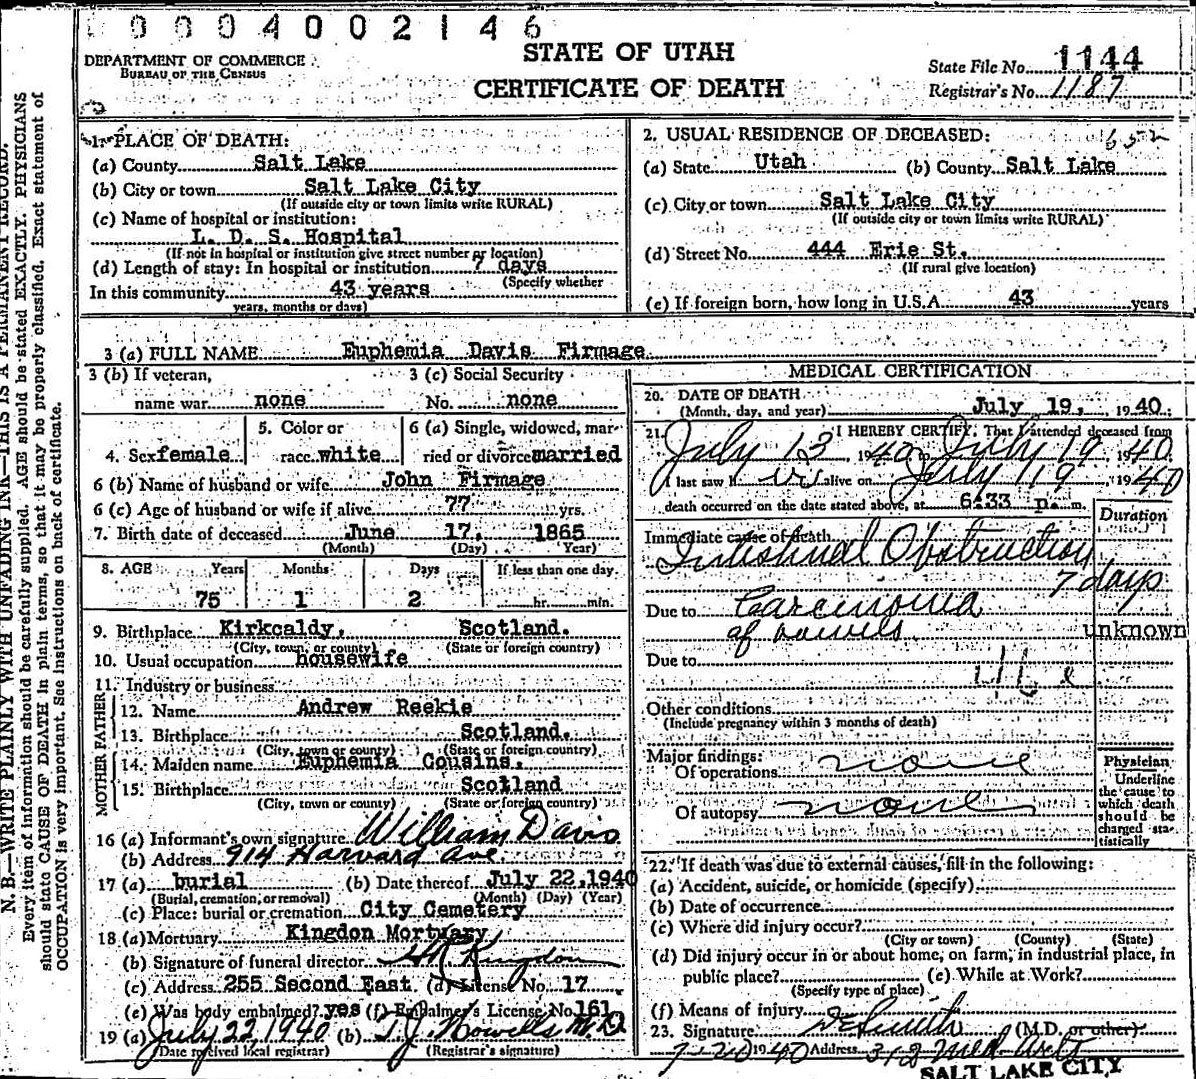 0004002146
DEPARTMENT OF COMMERCE
BUREAU OF THE CENSUS
STATE OF UTAH
CERTIFICATE OF DEATH
State File No. 1144
Registrar's No. 1187
1. PLACE OF DEATH:
(a) County Salt Lake
(b) City or town Salt Lake City
(If outside city or town limits write RURAL)
(c) Name of hospital or institution:
L. D. S. Hospital
(If not in hospital or institution give street number or location)
(d) Length of stay: In hospital or institution 7 days
(Specify whether
In this community 43 years
years, months or days)
2. USUAL RESIDENCE OF DECEASED: 652
(a) State Utah (b) County Salt Lake
(c) City or town Salt Lake City
(If outside city or town limits write RURAL)
(d) Street No. 444 Erie St.
(If rural give location)
(e) If foreign born, how long in U.S.A. 43 years
3 (a) FULL NAME Euphemia Davis Firmage
3 (b) If veteran, 3 (c) Social Security
name war none No. none
4. Sex female 5. Color or race white 6 (a) Single, widowed, married or divorced married
6 (b) Name of husband or wife John Firmage
6 (c) Age of husband or wife if alive 77 yrs.
7. Birth date of deceased June 17, 1865
(Month) (Day) Year)
8. AGE Years Months Days If less than one day.
75 1 2 hr. min.
9. Birthplace Kirkcaldy, Scotland.
(City, town, or county) (State or foreign country)
10. Usual occupation housewife
11. Industry or business
FATHER
12. Name Andrew Reekie
13. Birthplace Scotland.
(City, town or county) (State or foreign country)
MOTHER
14. Maiden name Euphemia Cousins.
15. Birthplace Scotland
(City, town or county) (State or foreign country)
16 (a) Informant's own signature William Davis
(b) Address 914 Harvard Ave
17 (a) burial (b) Date thereof July 22, 1940
(Burial, cremation, or removal) (Month) (Day) (Year)
(c) Place: burial or cremation City Cemetery
18 (a) Mortuary Kingdon Mortuary
(b) Signature of funeral director Kingdon
(c) Address 255 Second East (d) License No. 17
(e) Was body embalmed? yes (f) Embalmer's License No. 161
19 (a) July 22, 1940 (b) T. J. Howells M.D.
(Date received local registrar) (Registrar's signature)
MEDICAL CERTIFICATION
20. DATE OF DEATH
(Month, day, and year) July 19, 1940.
21. I HEREBY CERTIFY, That I attended deceased from
July 13 1940 July 19 1940.
I last saw h er alive on July 19, 1940
death occurred on the date stated above, at 6:33 p. m.
Duration
Immediate cause of death
Intestinal Obstruction
7 days
Due to Carcinoma
of bowels unknown
Due to
Other conditions
(Include pregnancy within 3 months of death)
Major findings:
Of operations none
Of autopsy none
Physician
Underline
the cause to
which death
should be
charged sta-
tistically
22. If death was due to external causes, fill in the following:
(a) Accident, suicide, or homicide (specify)
(b) Date of occurrence
(c) Where did injury occur?
(City or town) (County) (State)
(d) Did injury occur in or about home, on farm, in industrial place, in
public place? (e) While at Work?
(Specify type of place)
(f) Means of injury
23. Signature Smith (M.D. or other)
7-20 1940 Address 312 Med Arts
SALT LAKE CITY
N. B.—WRITE PLAINLY WITH UNFADING INK—THIS IS A PERMANENT RECORD.
Every item of information should be carefully supplied. AGE should be stated EXACTLY. PHYSICIANS
should state CAUSE OF DEATH in plain terms, so that it may be properly classified. Exact statement of
OCCUPATION is very important. See instructions on back of certificate.